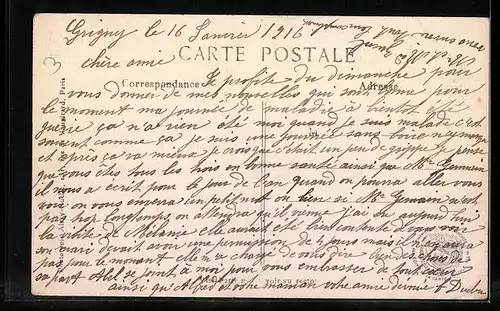 Grigny le 16 Janvier 1916
chère amie
CARTE POSTALE
Correspondance
Adresse
Je profite du dimanche pour
vous donner de mes nouvelles qui sont bonne pour
le moment ma journée de maladie a bientôt été
guérie ça n'a rien été moi quand je suis malade c'est
souvent comme ça je suis une journée sans boire ny manger
et après ça va mieux je crois que c'était un peu de grippe je pense
que vous êtes tous les trois en bonne santé ainsi que Mr Germain
il nous a écrit pour le jour de l'an quand on pourra aller vous
voir on vous enverra un petit mot ou bien si Mr Germain
pas trop longtemps on attendra qu'il vienne j'ai eu aujourd'hui
la visite de Mélanie elle aurait été bien contente de vous voir
son mari devait avoir une permission de 4 jours mais il n'aura
pas pour le moment elle m'a chargé de vous dire bien des choses de
sa part Abel se joint à moi pour vous embrasser de tout cœur
ainsi qu'Alfred et votre maman votre amie
voir au verso